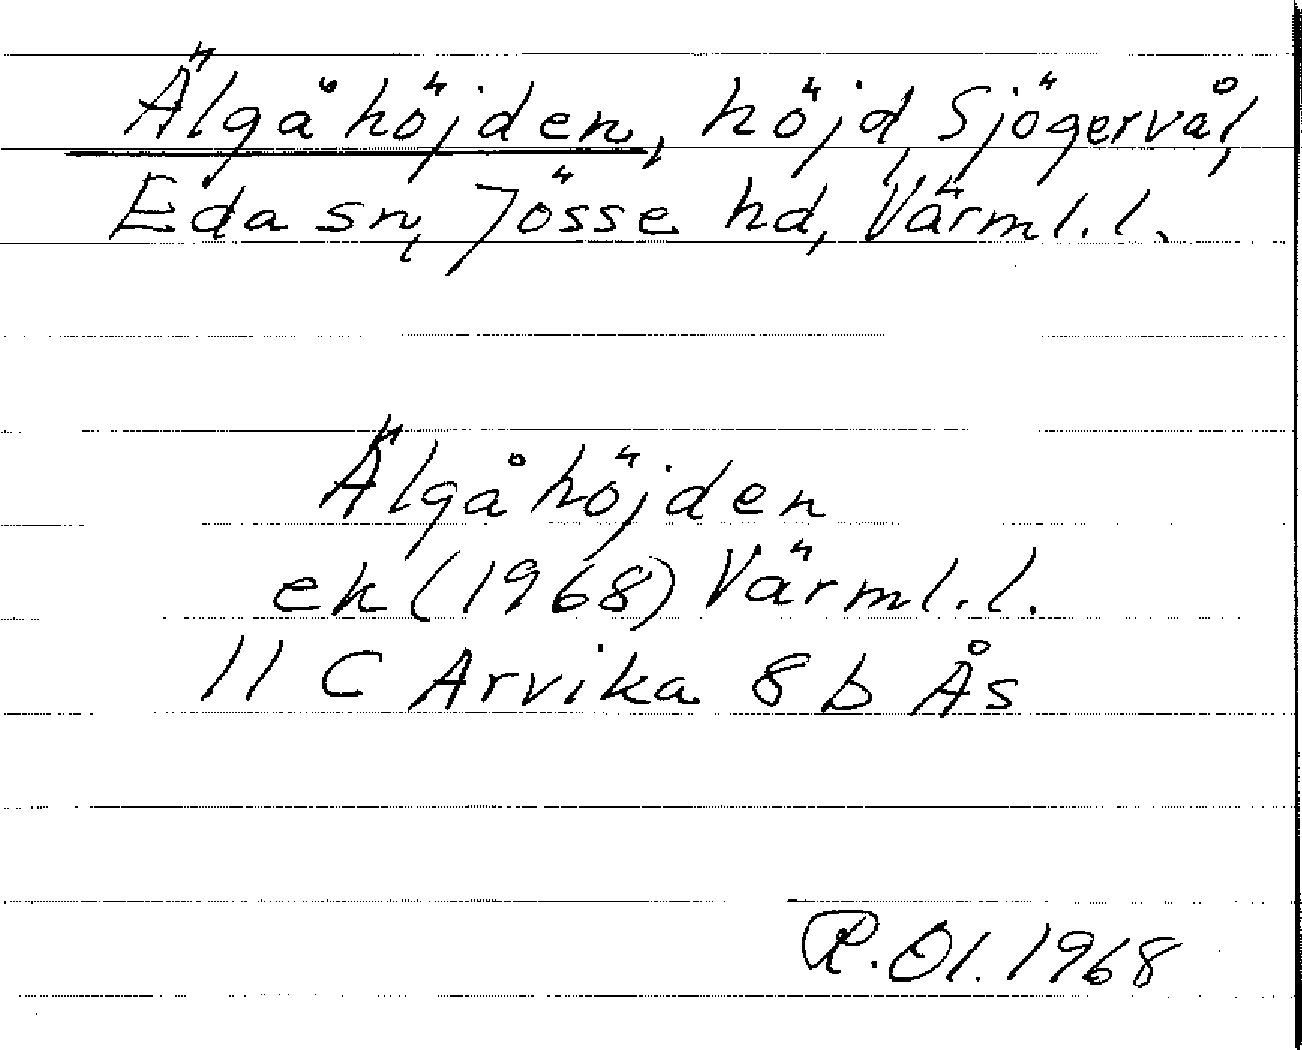 Älgåhöjden, höjd, Sjögervål,
Eda sn, Jösse hd, Värml.l.
Älgåhöjden
ek (1968) Värml.l.
11 C Arvika 8 b Ås
R.Ol. 1968